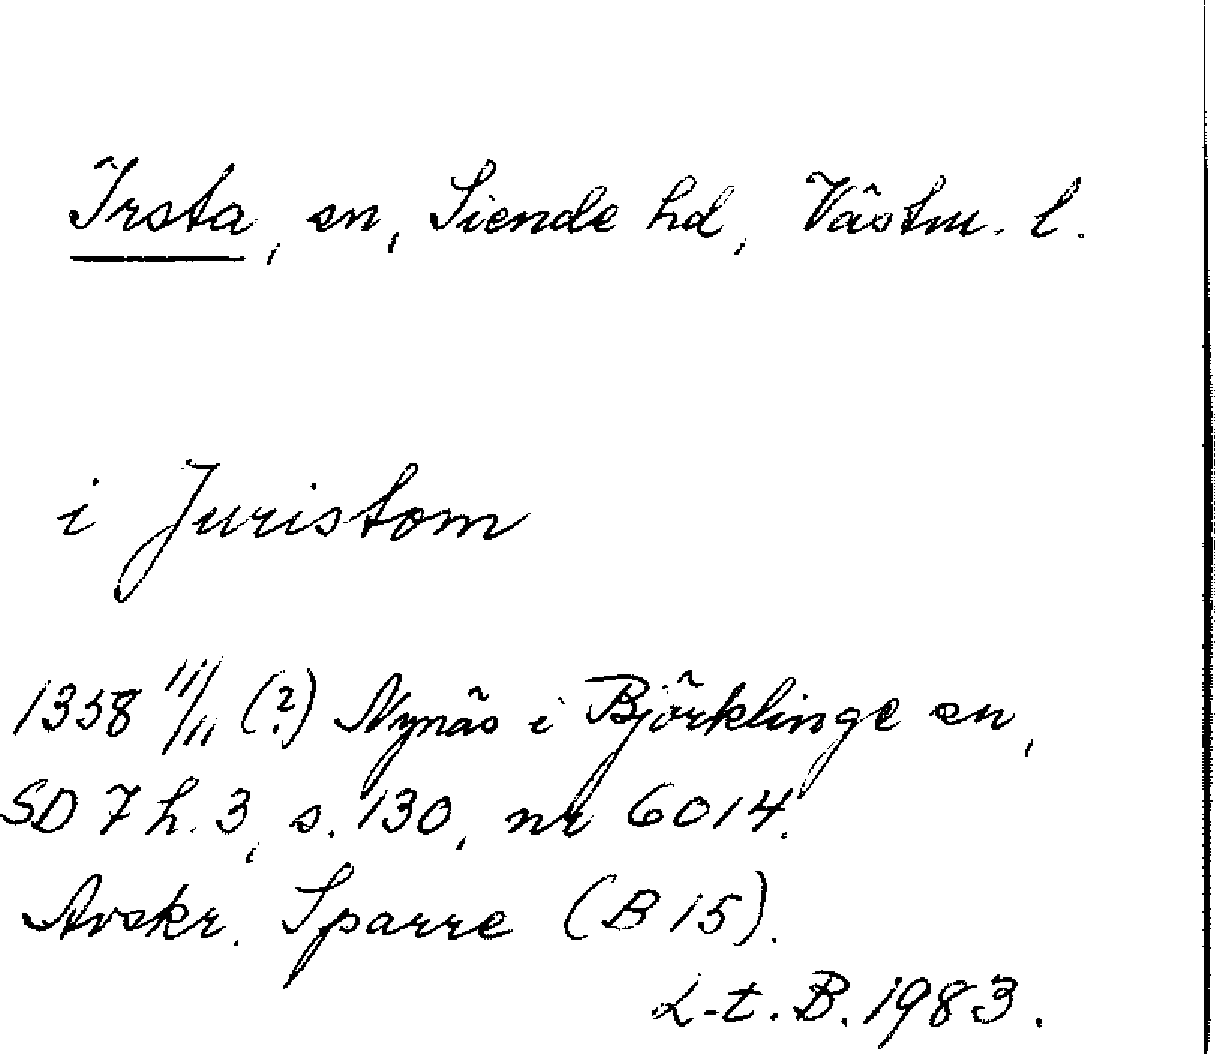 Irsta, sn, Siende hd, Västm. l.
i Juristom
1358 11/11 (?) Nynäs i Björklinge sn,
SD 7 h. 3, s. 130, nr 6014.
Avskr. Sparre (B 15).
L-t. B. 1983.